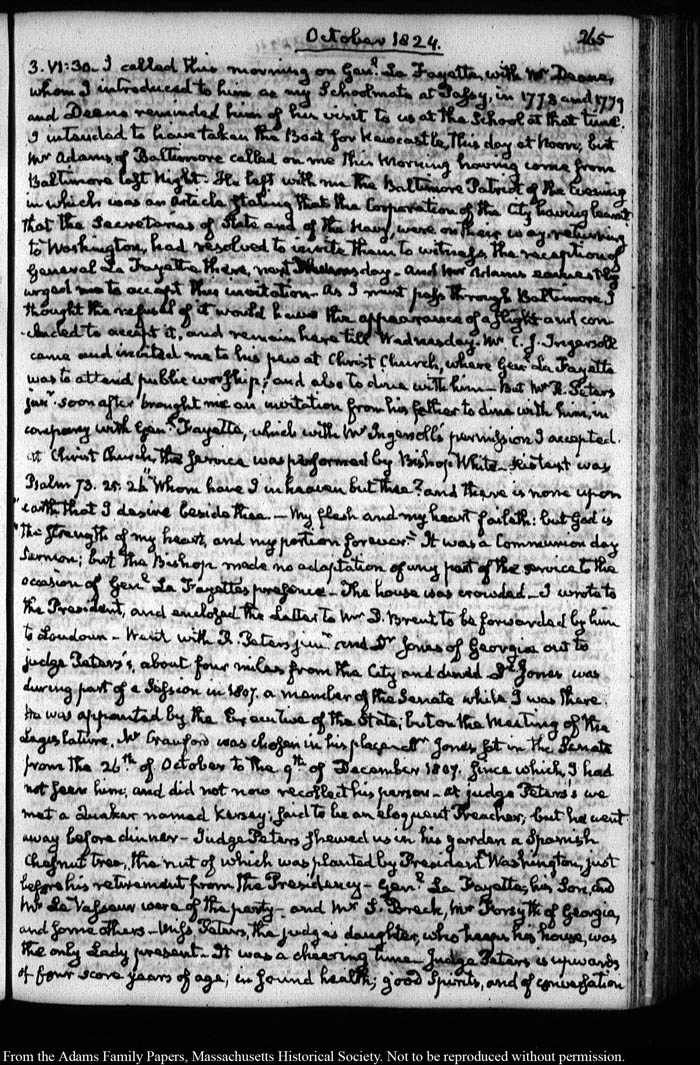 October 1824.
265
3. VI:30. I called this morning on Genl. La Fayette, with Mr Deane,
whom I introduced to him as my Schoolmate at Passy, in 1778 and 1779
and Deane reminded him of his visit to us at the School at that time.
I intended to have taken the Boat for Newcastle, this day at Noon; but
Mr Adams, of Baltimore called on me this Morning having come from
Baltimore last Night. He left with me the Baltimore Patriot of the Evening
in which was an Article stating that the Corporation of the City having learnt
that the Secretaries of State and of the Navy, were on their way returning
to Washington, had resolved to invite them to witness the reception of
General La Fayette there, next Thursday. And Mr Adams earnestly
urged me to accept this invitation. As I must pass through Baltimore, I
thought the refusal of it would have the appearance of a slight and con-
-cluded to accept it, and remain here till Wednesday. Mr C. J. Ingersoll
came and invited me to his pew at Christ Church, where Genl. La Fayette
was to attend public worship; and also to dine with him — But Mr R. Peters
junr. soon after brought me an invitation from his father to dine with him, in
company with Genl. Fayette, which with Mr Ingersoll's permission I accepted.
at Christ Church, the service was performed by Bishop White. His text was
Psalm 73. 25. 26 "Whom have I in heaven but thee? and there is none upon
"earth that I desire beside thee. — My flesh and my heart faileth: but God is
"the strength of my heart, and my portion forever." It was a Communion day
Sermon; but the Bishop made no adaptation of any part of the service to the
occasion of Genl. La Fayette's presence — The house was crowded — I wrote to
the President, and enclosed the Letter to Mr D. Brent to be forwarded by him
to Loudoun — Went with R. Peters junr. and Dr Jones of Georgia out to
judge Peters's, about four miles from the City and dined. Dr Jones was
during part of a Session in 1807. a member of the Senate while I was there.
He was appointed by the Executive of the State; but on the Meeting of the
Legislature, Mr Crauford was chosen in his place. Mr Jones sat in the Senate
from the 26th of October to the 9th of December 1807. Since which, I had
not seen him, and did not now recollect his person — at judge Peters's we
met a Quaker named Kersey; said to be an eloquent Preacher; but he went
away before dinner — Judge Peters shewed us in his garden a Spanish
Chesnut tree, the nut of which was planted by President Washington, just
before his retirement from the Presidency — Genl. La Fayette, his Son, and
Mr Le Vasseur were of the party — and Mr S. Breck, Mr Forsyth of Georgia,
and some others — Miss Peters, the judge's daughter, who keeps his house, was
the only Lady present — It was a cheering time — Judge Peters is upwards
of four score years of age; in sound health; good Spirits, and of conversation
From the Adams Family Papers, Massachusetts Historical Society. Not to be reproduced without permission.